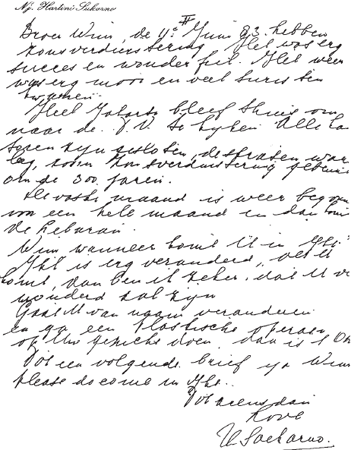 Ny. Hartini Sukarno
II
Broer Wim, de 11e Juni 83 hebben
zonsverduistering. Het was erg
succes en wonderful. Het weer
was erg mooi en veel turisten
Heel Jakarta bleef thuis om
naar de T.V. te kijken. Alle
zijn gesloten, de straten
zonsverduistering
om de 300 jaren.
De vaste maand is weer begonnen
voor een hele maand en dan komt
de Lebaran.
Wim wanneer komt U in Jkt.
Jkt is erg veranderd, als U
komt, dan ben ik zeker, dat U
wonderd zal zijn
Gaat U van naam veranderen
en ga een Plastische operasi
op Uw gezicht doen, dan is 't OK
Tot een volgende brief ya Wim
please do come in Jkt.
Tot weerziens dan
Love
H Soekarno.